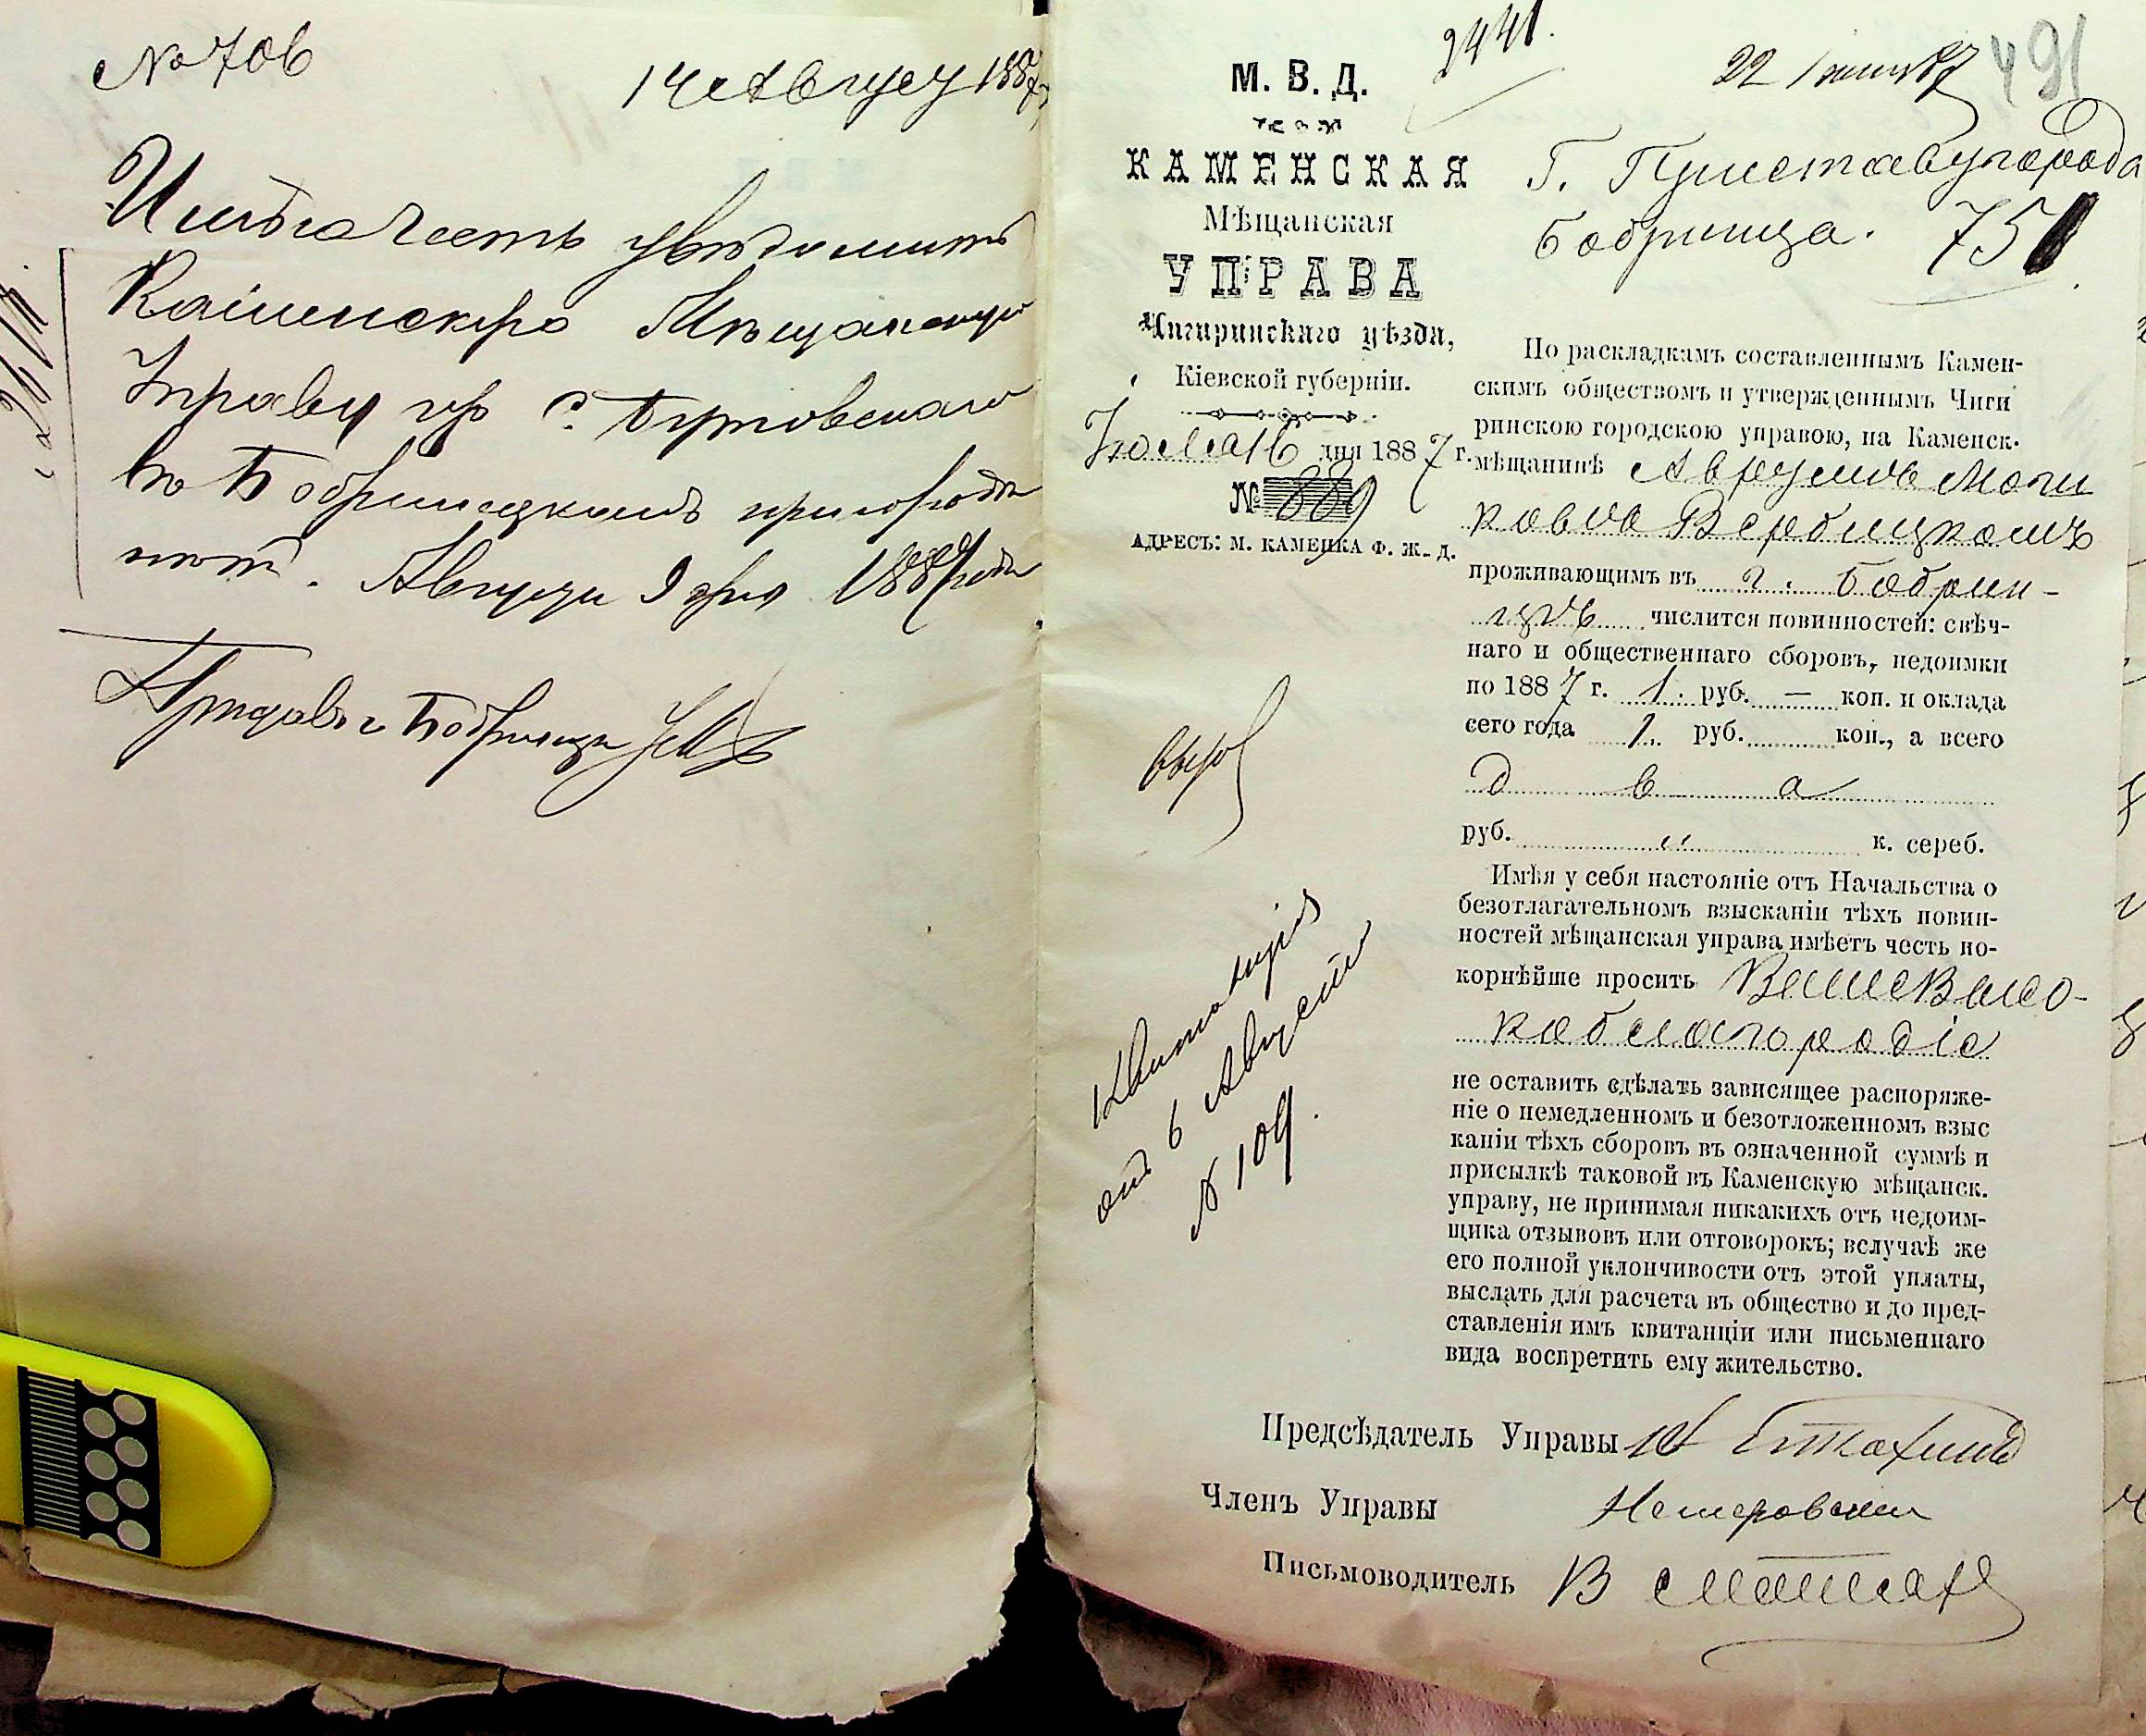 № 706
14 Август 1887
Имѣю честь увѣдомить
Каменскую Мѣщанскую
Управу что г.
въ Бобринецкомъ пригородѣ
нѣтъ. Августа 9 дня 1887 года
Приставъ г. Бобринца
2441.
22 87
491
М. В. Д.
КАМЕНСКАЯ
Мѣщанская
УПРАВА
Чигиринскаго уѣзда,
Кіевской губерніи.
Іюля 16 дня 1887 г.
№ 889
АДРЕСЪ: М. КАМЕНКА Ф. Ж. Д.
Г. Приставу города
Бобринца. 751
По раскладкамъ составленнымъ Камен-
скимъ обществомъ и утвержденнымъ Чиги
ринскою городскою управою, на Каменск.
мѣщанинѣ Аврумѣ Мош
ковѣ Вербицкомъ
проживающимъ въ г. Бобрин-
цѣ числится повинностей: свѣч-
наго и общественнаго сборовъ, недоимки
по 1887 г. 1. руб. — коп. и оклада
сего года 1. руб. коп., а всего
два
руб. " к. сереб.
Имѣя у себя настояніе отъ Начальства о
безотлагательномъ взысканіи тѣхъ повин-
ностей мѣщанская управа имѣетъ честь по-
корнѣйше просить Ваше Высо-
коблагородіе
не оставить сдѣлать зависящее распоряже-
ніе о немедленномъ и безотложенномъ взыс
каніи тѣхъ сборовъ въ означенной суммѣ и
присылкѣ таковой въ Каменскую мѣщанск.
управу, не принимая никакихъ отъ недоим-
щика отзывовъ или отговорокъ; вслучаѣ же
его полной уклончивости отъ этой уплаты,
выслать для расчета въ общество и до пред-
ставленія имъ квитанціи или письменнаго
вида воспретить ему жительство.
Квитанція
отъ 6 Августа
№ 109.
Предсѣдатель Управы
Членъ Управы
Письмоводитель В